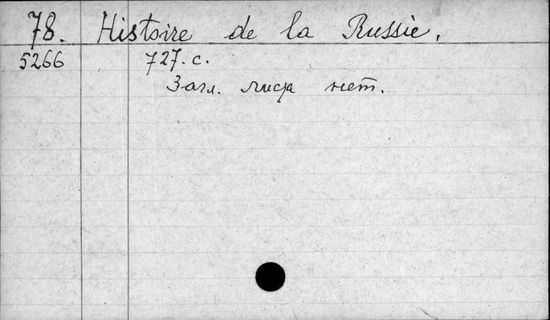 78. Histoire de la Russie.
5266 727. с.
Загл. листа нет.